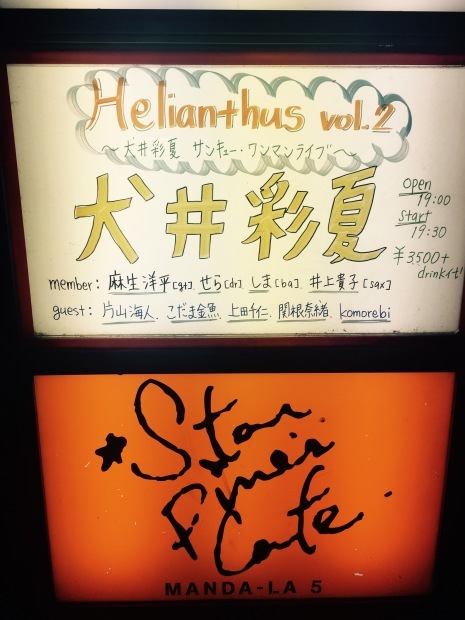 Helianthus vol.2
～犬井彩夏 サンキュー・ワンマンライブ～
犬井彩夏
open
19:00
start
19:30
¥3500+
drink代!
member: 麻生洋平[gt] せら[dr] しま[ba] 井上貴子[sax]
guest: 片山海人. こだま金魚. 上田千仁. 関根奈緒. komorebi
★Star
Pine's
Cafe.
MANDA-LA 5